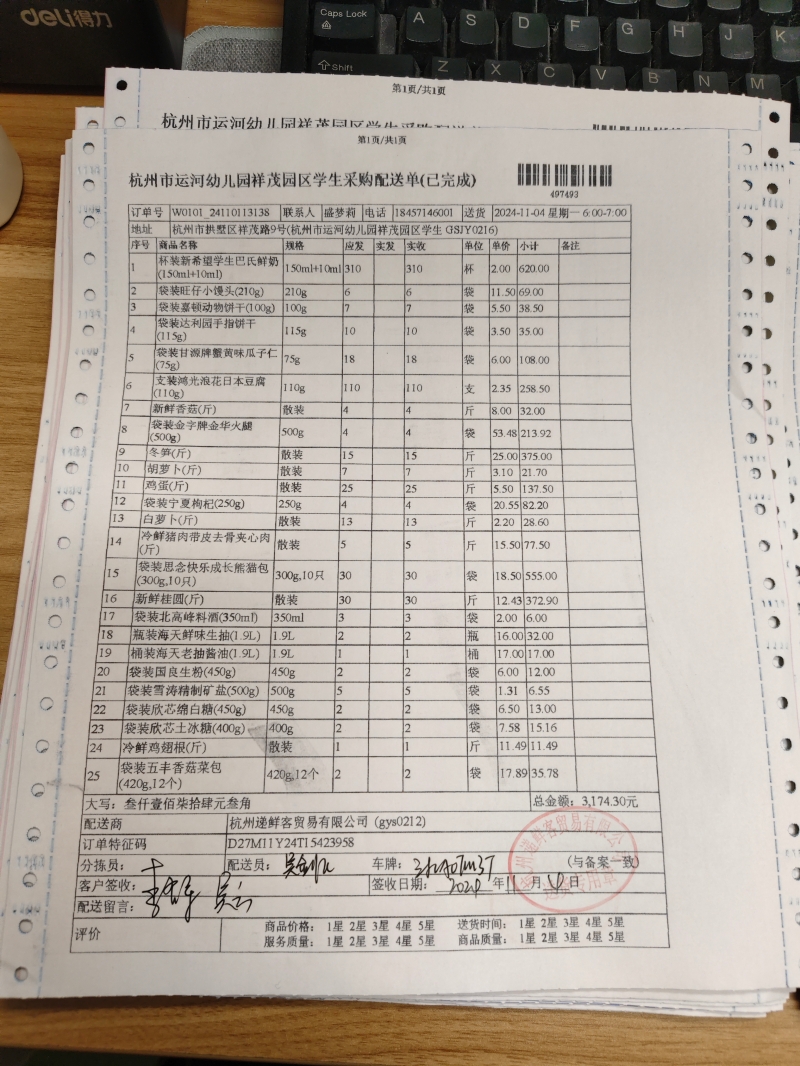 deli得力
Caps Lock A S D F G H J K
Shift Z X C V B N M
第1页/共1页
杭州市运河幼儿园祥茂园区学生采购配送
第1页/共1页
杭州市运河幼儿园祥茂园区学生采购配送单(已完成)
497493
订单号 W0101_24110113138 联系人 盛梦莉 电话 18457146001 送货 2024-11-04 星期一 6:00-7:00
地址 杭州市拱墅区祥茂路9号(杭州市运河幼儿园祥茂园区学生 GSJY0216)
序号 商品名称 规格 应发 实发 实收 单位 单价 小计 备注
1 杯装新希望学生巴氏鲜奶(150ml+10ml) 150ml+10ml 310 310 杯 2.00 620.00
2 袋装旺仔小馒头(210g) 210g 6 6 袋 11.50 69.00
3 袋装嘉顿动物饼干(100g) 100g 7 7 袋 5.50 38.50
4 袋装达利园手指饼干(115g) 115g 10 10 袋 3.50 35.00
5 袋装甘源牌蟹黄味瓜子仁(75g) 75g 18 18 袋 6.00 108.00
6 支装鸿光浪花日本豆腐(110g) 110g 110 110 支 2.35 258.50
7 新鲜香菇(斤) 散装 4 4 斤 8.00 32.00
8 袋装金字牌金华火腿(500g) 500g 4 4 袋 53.48 213.92
9 冬笋(斤) 散装 15 15 斤 25.00 375.00
10 胡萝卜(斤) 散装 7 7 斤 3.10 21.70
11 鸡蛋(斤) 散装 25 25 斤 5.50 137.50
12 袋装宁夏枸杞(250g) 250g 4 4 袋 20.55 82.20
13 白萝卜(斤) 散装 13 13 斤 2.20 28.60
14 冷鲜猪肉带皮去骨夹心肉(斤) 散装 5 5 斤 15.50 77.50
15 袋装思念快乐成长熊猫包(300g,10只) 300g,10只 30 30 袋 18.50 555.00
16 新鲜桂圆(斤) 散装 30 30 斤 12.43 372.90
17 袋装北高峰料酒(350ml) 350ml 3 3 袋 2.00 6.00
18 瓶装海天鲜味生抽(1.9L) 1.9L 2 2 瓶 16.00 32.00
19 桶装海天老抽酱油(1.9L) 1.9L 1 1 桶 17.00 17.00
20 袋装国良生粉(450g) 450g 2 2 袋 6.00 12.00
21 袋装雪涛精制矿盐(500g) 500g 5 5 袋 1.31 6.55
22 袋装欣芯绵白糖(450g) 450g 2 2 袋 6.50 13.00
23 袋装欣芯土冰糖(400g) 400g 2 2 袋 7.58 15.16
24 冷鲜鸡翅根(斤) 散装 1 1 斤 11.49 11.49
25 袋装五丰香菇菜包(420g,12个) 420g,12个 2 2 袋 17.89 35.78
大写：叁仟壹佰柒拾肆元叁角 总金额：3,174.30元
配送商 杭州递鲜客贸易有限公司 (gys0212)
订单特征码 D27M11Y24T15423958
分拣员： 配送员： 车牌： (与备案一致)
客户签收： 签收日期： 2024 年 11 月 4 日
配送留言：
评价 商品价格： 1星 2星 3星 4星 5星 送货时间： 1星 2星 3星 4星 5星
服务质量： 1星 2星 3星 4星 5星 商品质量： 1星 2星 3星 4星 5星